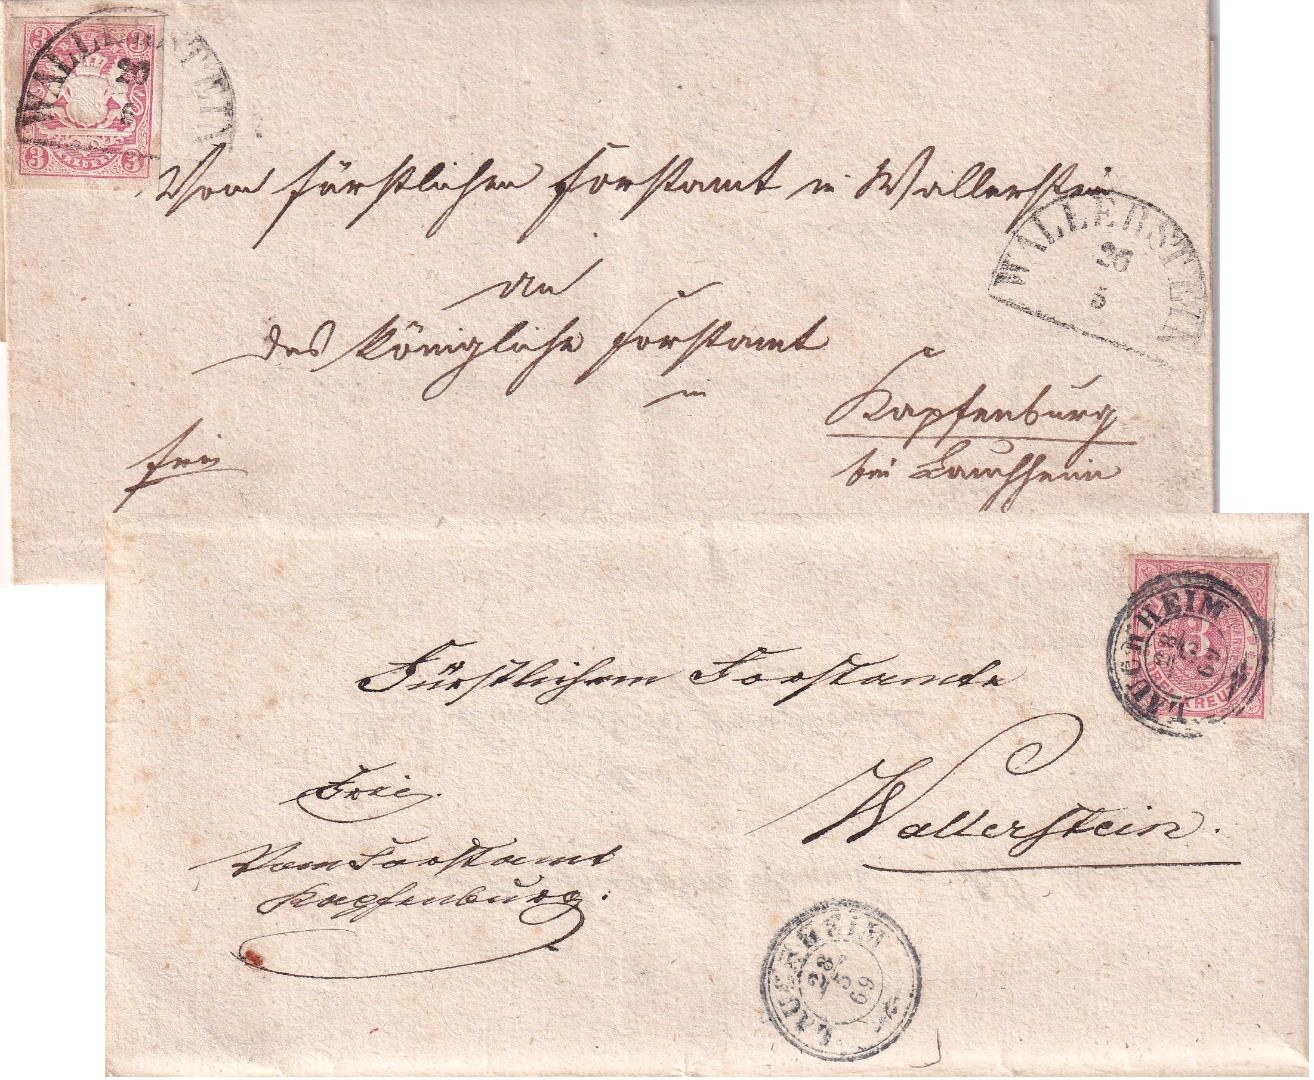 3 3
WALLERSTEIN
26
5
3 3
Vom fürstlichen Forstamt in Wallerstein
WALLERSTEIN
26
5
an
das Königliche Forstamt
in
Kapfenburg
bei Lauchheim
frei
LAUCHHEIM
28
5
69
3
KREUZER
Fürstlichem Forstamte
Wallerstein.
Frei.
Vom Forstamt
Kapfenburg.
LAUCHHEIM
28
5
69